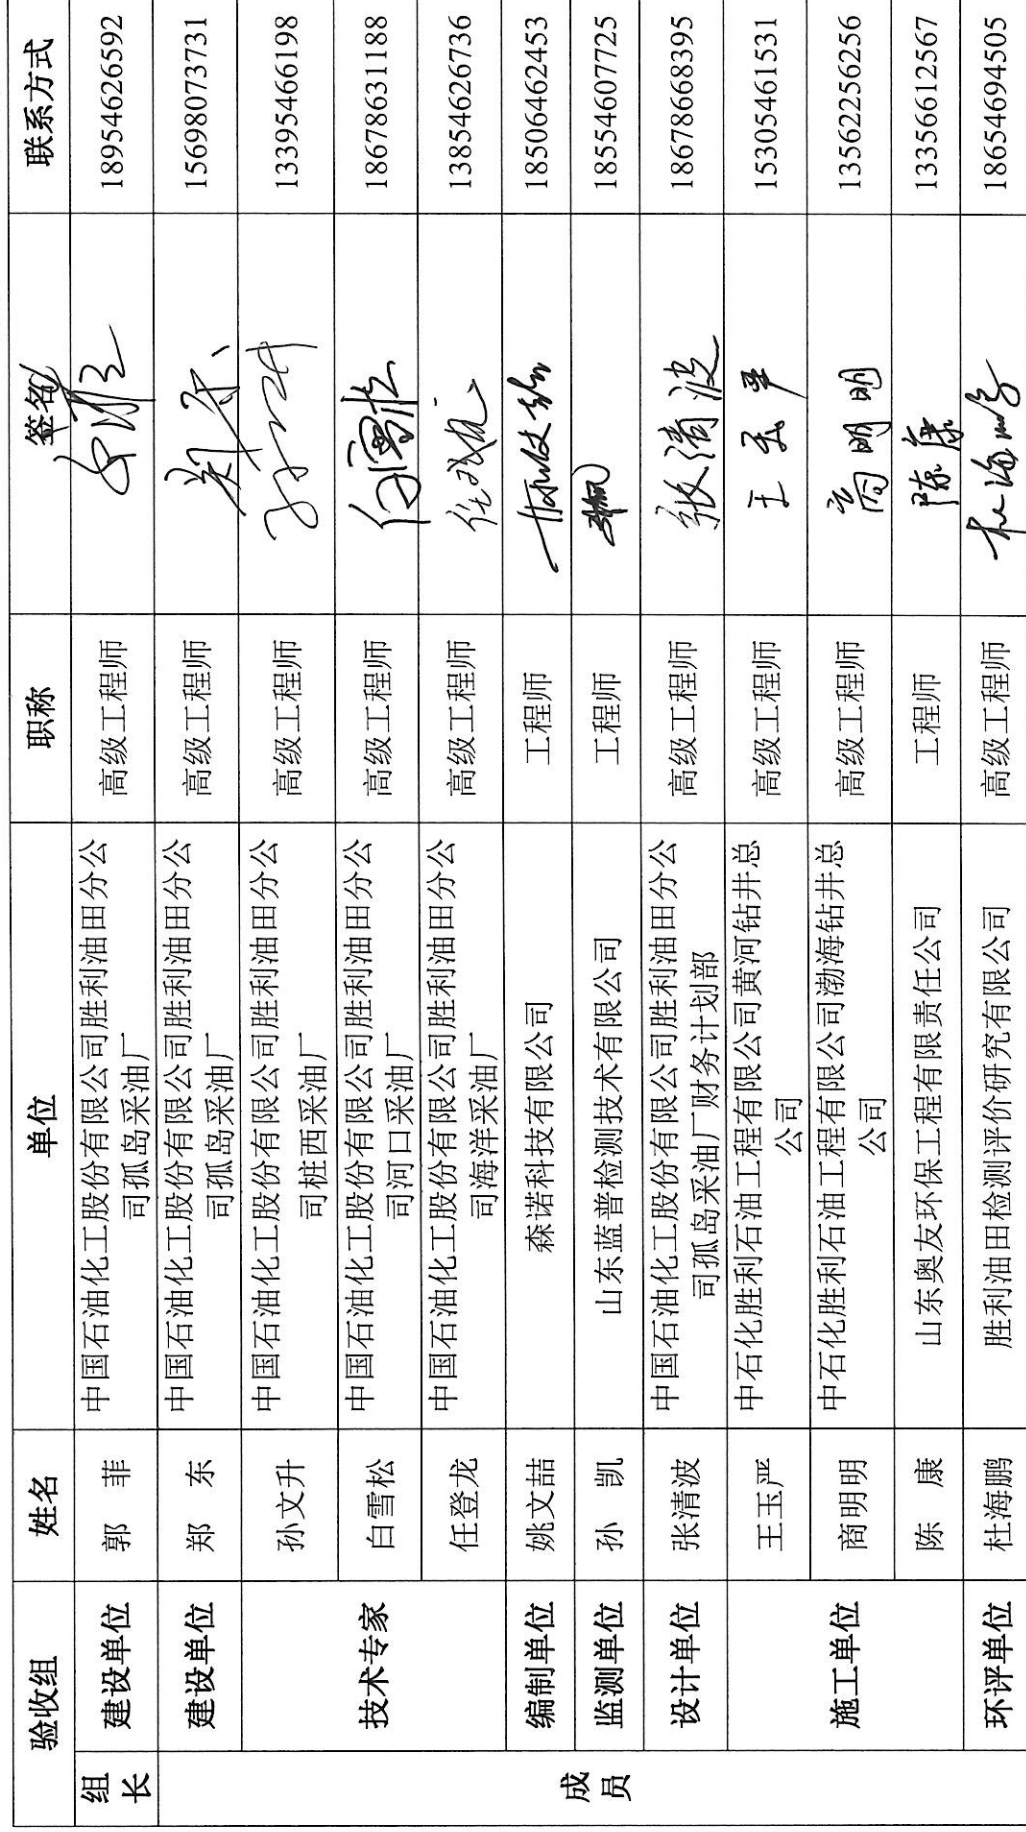 验收组 姓名 单位 职称 签名 联系方式
组长 建设单位 郭 菲 中国石油化工股份有限公司胜利油田分公司孤岛采油厂 高级工程师 18954626592
成员 建设单位 郑 东 中国石油化工股份有限公司胜利油田分公司孤岛采油厂 高级工程师 15698073731
技术专家 孙文升 中国石油化工股份有限公司胜利油田分公司桩西采油厂 高级工程师 孙文升 13395466198
白雪松 中国石油化工股份有限公司胜利油田分公司河口采油厂 高级工程师 白雪松 18678631188
任登龙 中国石油化工股份有限公司胜利油田分公司海洋采油厂 高级工程师 任登龙 13854626736
编制单位 姚文喆 森诺科技有限公司 工程师 18506462453
监测单位 孙 凯 山东蓝普检测技术有限公司 工程师 18554607725
设计单位 张清波 中国石油化工股份有限公司胜利油田分公司孤岛采油厂财务计划部 高级工程师 张清波 18678668395
施工单位 王玉严 中石化胜利石油工程有限公司黄河钻井总公司 高级工程师 王玉严 15305461531
商明明 中石化胜利石油工程有限公司渤海钻井总公司 高级工程师 商明明 13562256256
陈 康 山东奥友环保工程有限责任公司 工程师 陈康 13356612567
环评单位 杜海鹏 胜利油田检测评价研究有限公司 高级工程师 杜海鹏 18654694505